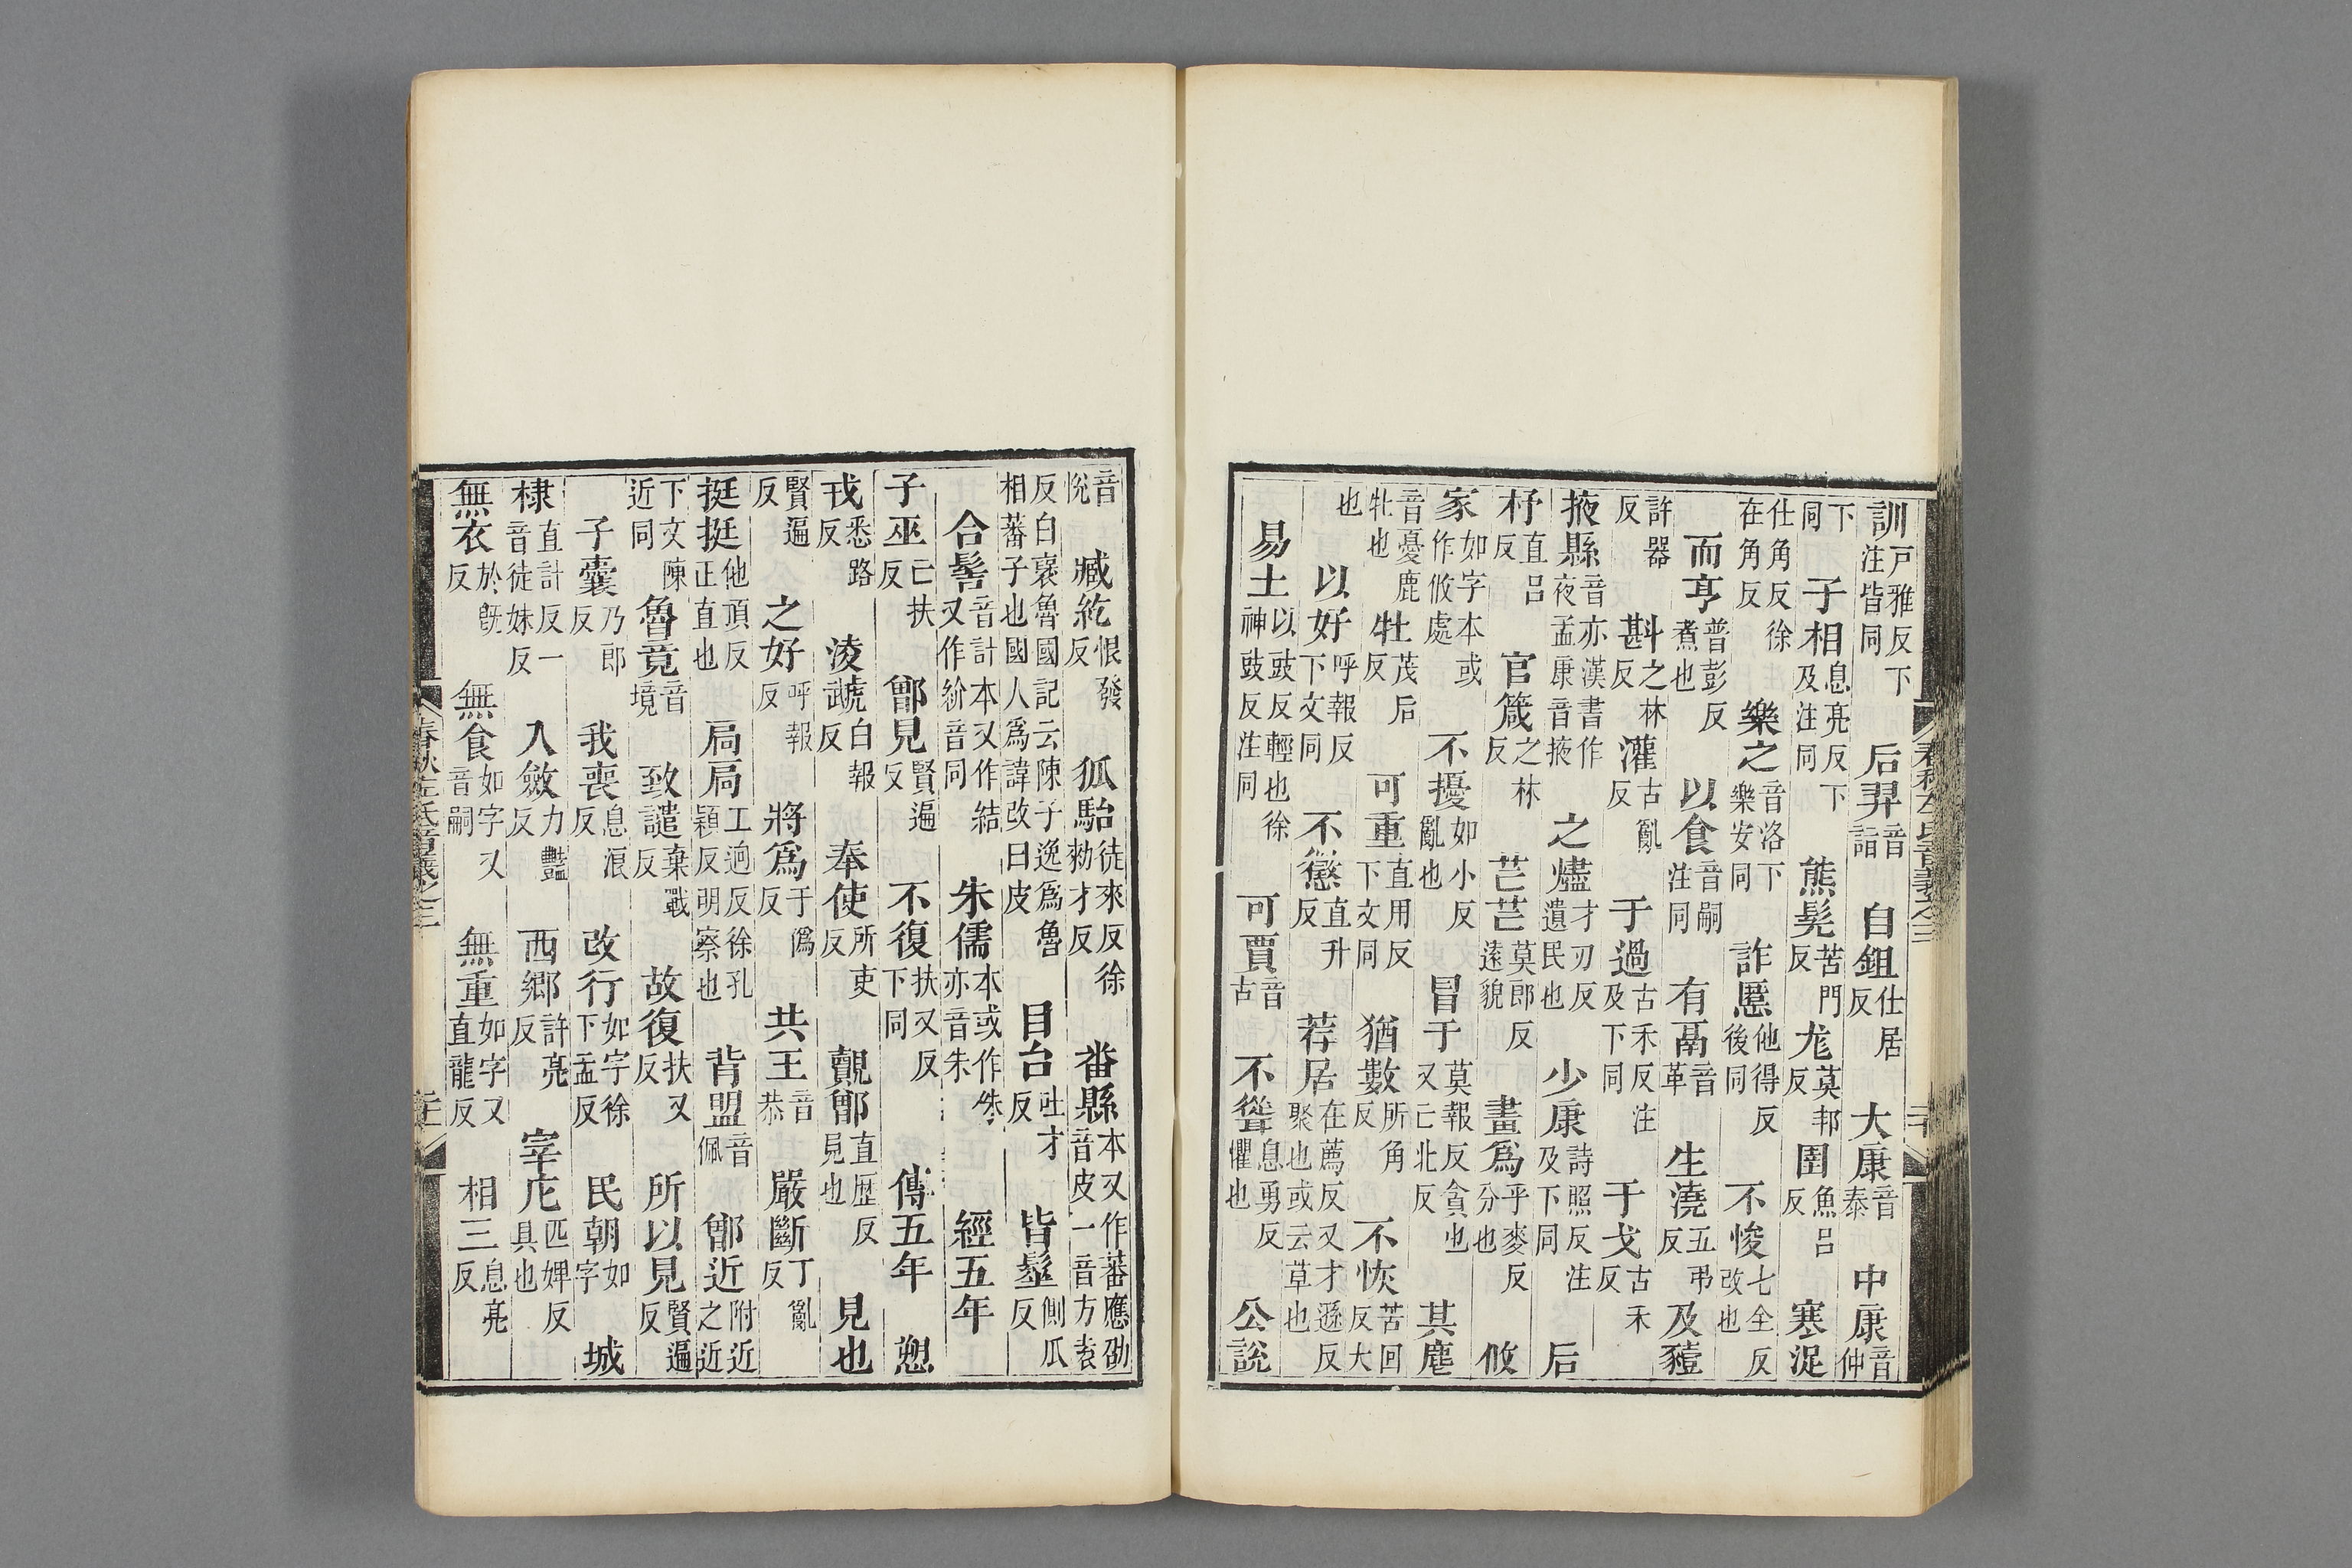 訓戸雅反下注皆同 后羿音詣 自鉏仕居反 大康音泰 中康音仲
下同 子相息亮反下及注同 熊髡苦門反 尨莫邦反 圉魚呂反 寒浞
仕角反徐在角反 樂之音洛下樂安同 詐慝他得反後同 不悛七全反改也
而亨普彭反煮也 以食音嗣注同 有鬲音革 生澆五弔反 及豷
許器反 斟之林反 灌古亂反 于過古禾反注及下同 于戈古禾反
掖縣音亦漢書作夜孟康音掖 之燼才刃反遺民也 少康詩照反注及下同 后
杼直呂反 官箴之林反 芒芒莫郎反遠貌 畫爲乎麥反分也 攸
家如字本或作攸處 不擾如小反亂也 冒于莫報反貪也又亡北反 其麀
音憂鹿牝也 牡茂后反 可重直用反下文同 猶數所角反 不恢苦回反大
也 以好呼報反下文同 不懲直升反 荐居在薦反又才遜反聚也或云草也
易土以豉反輕也徐神豉反注同 可賈音古 不聳息勇反懼也 公說
春秋左氏音義之三
音悅 臧紇恨發反 狐駘徒來反徐勑才反 番縣本又作蕃應劭音皮一音方袁
反白裒魯國記云陳子逸爲魯相蕃子也國人爲諱改曰皮 目台吐才反 皆髽側瓜反
合髻音計本又作結又作紒音同 朱儒本或作侏亦音朱 經五年
子巫亡扶反 鄫見賢遍反 不復扶又反下同 傳五年 愬
戎悉路反 淩虣白報反 奉使所吏反 覿鄫直歷反見也 見也
賢遍反 之好呼報反 將爲于僞反 共王音恭 嚴斷丁亂反
挺挺他頂反正直也 局局工迥反徐孔穎反明察也 背盟音佩 鄫近附近之近
下文陳近同 魯竟音境 致譴棄戰反 故復扶又反 所以見賢遍反
子囊乃郎反 我喪息浪反 改行如字徐下孟反 民朝如字 城
棣直計反一音徒妹反 入斂力豔反 西鄉許亮反 宰庀匹婢反具也
無衣於旣反 無食如字又音嗣 無重如字又直龍反 相三息亮反
春秋左氏音義之三